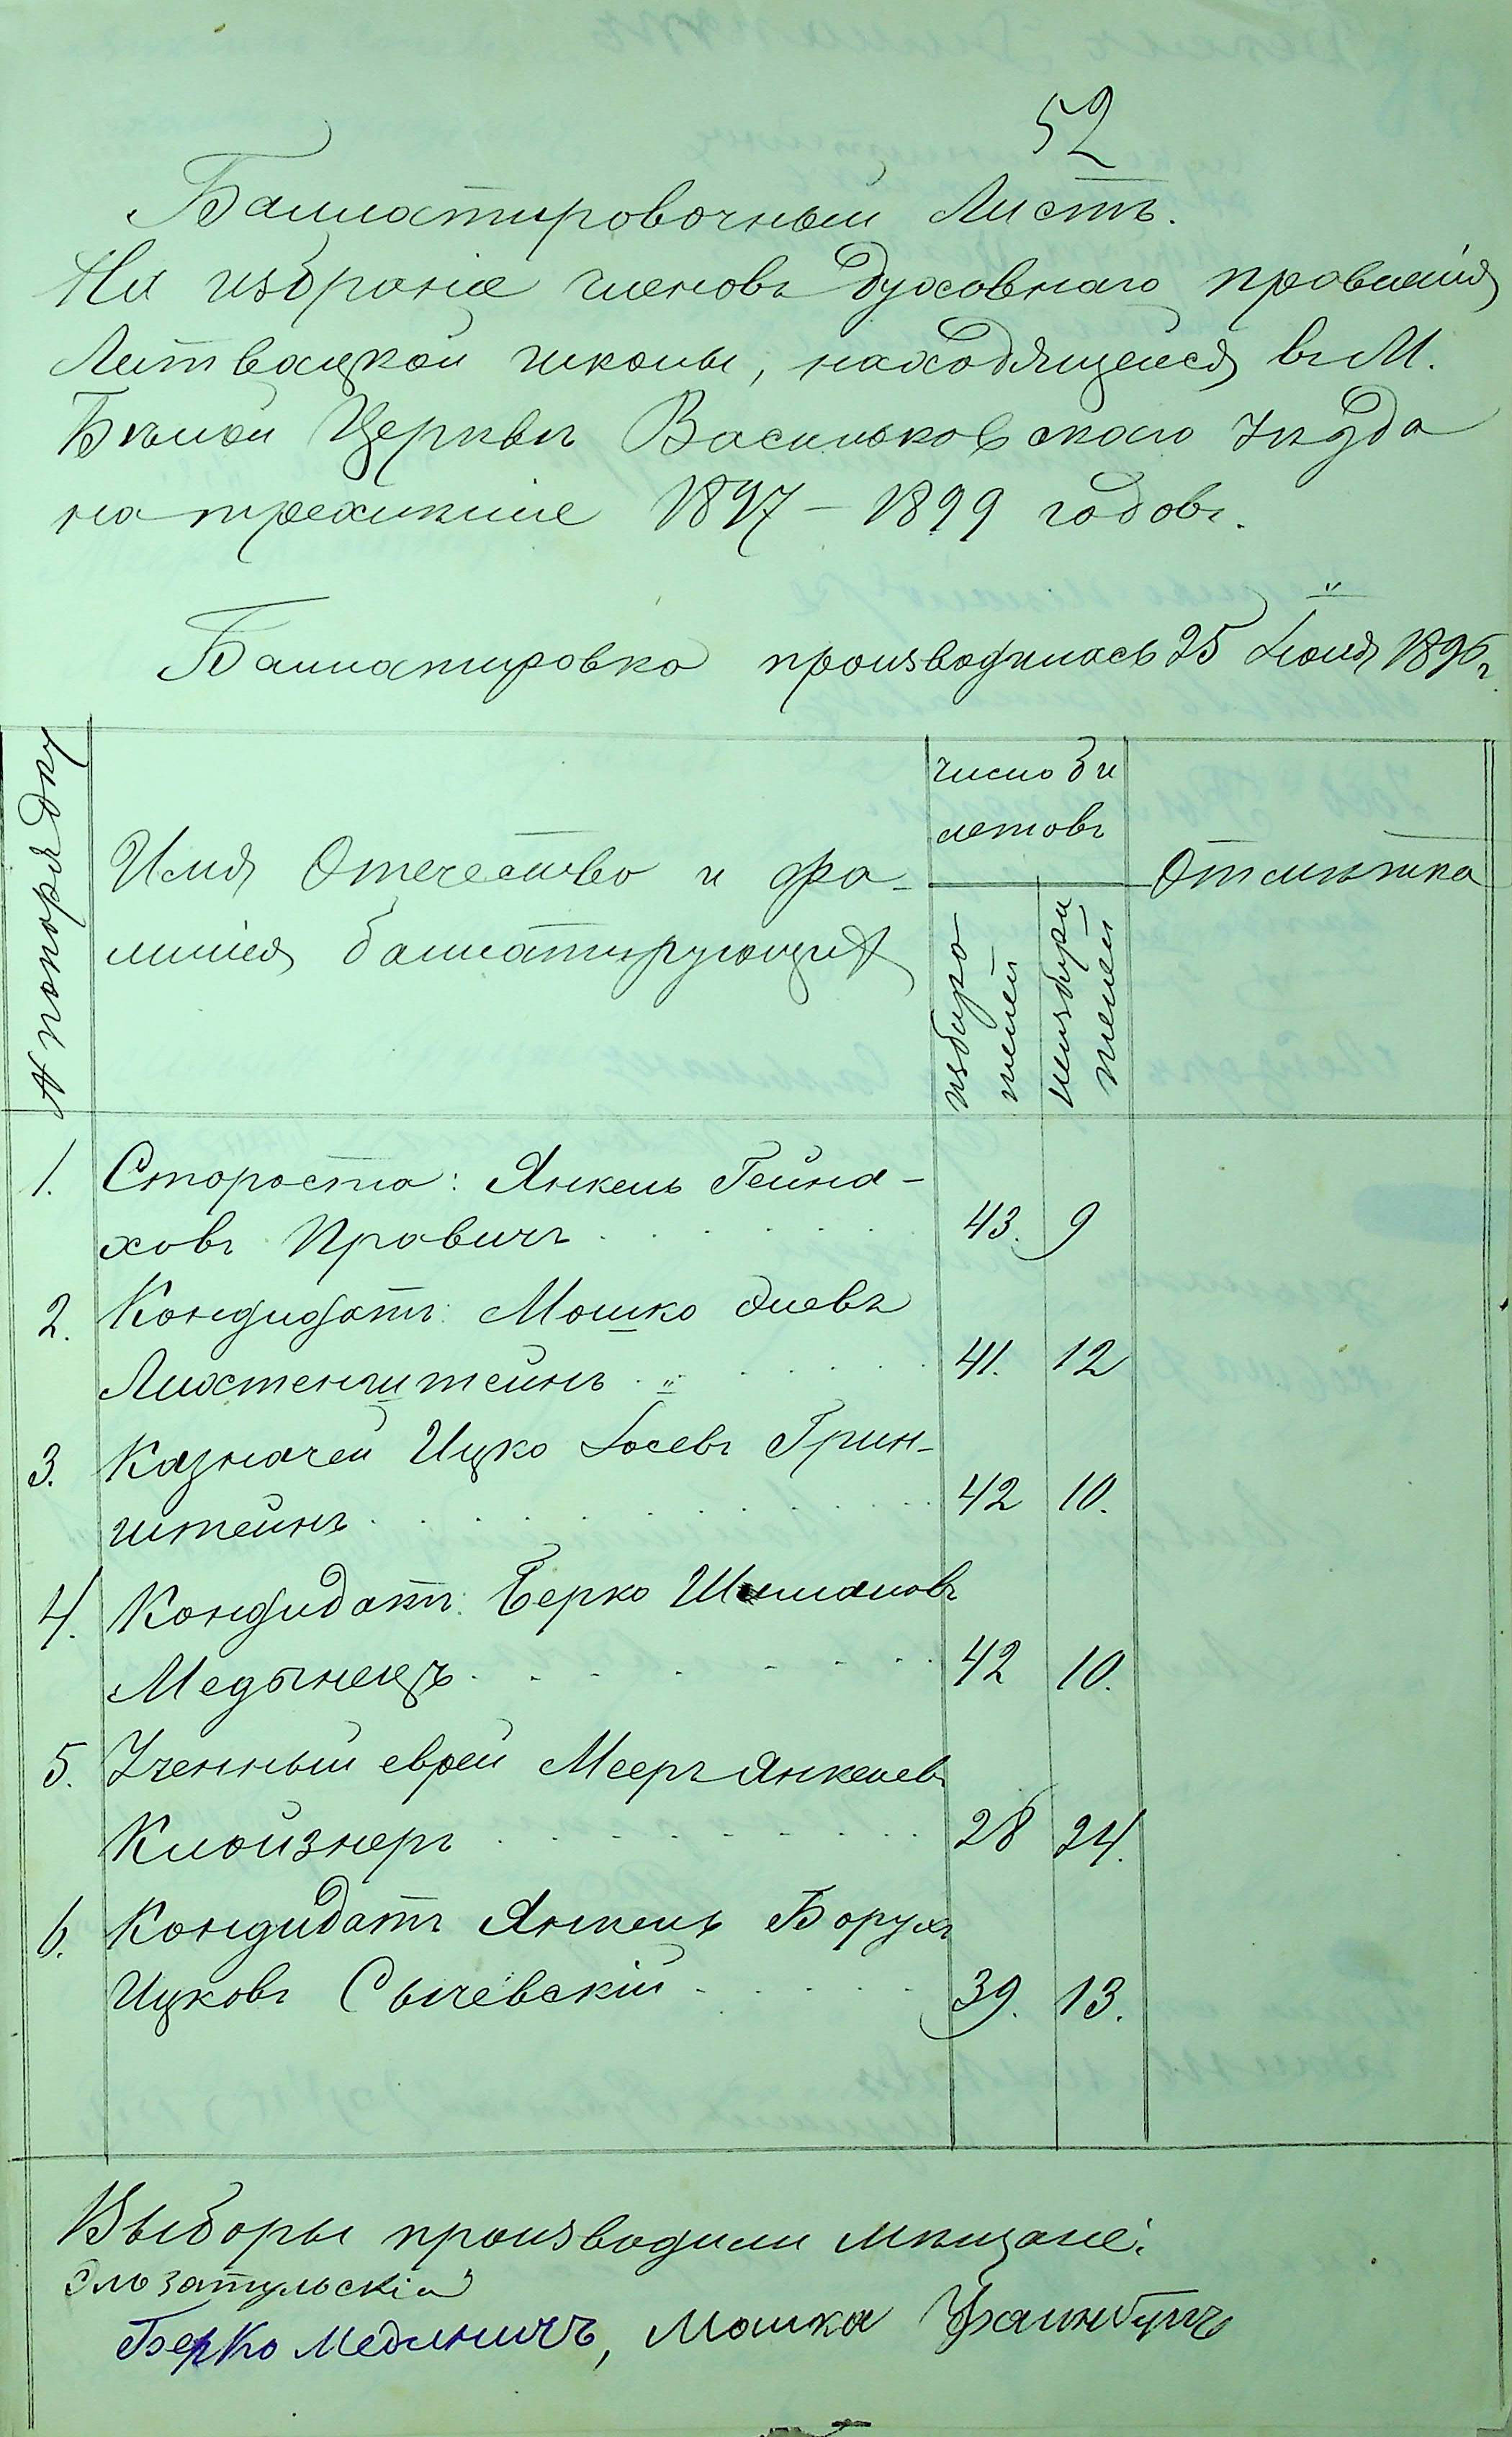 52
Баллотировочный Листъ.
На избраніе членовъ духовнаго правленія
Литвацкой школы, находящейся въ М.
Бѣлой Церквѣ Васильковскаго Уѣзда
на трехлѣтіе 1897 – 1899 годовъ.
Баллатировка производилась 25 Іюля 1896 г.
№ по порядку
Имя Отечество и фа-
милія баллатирующихся
число би
летовъ
избира
телей
неизбира
телей
Отмѣтка
1. Староста: Янкель Гейна-
ховъ Правичъ . . . . . 43. 9
2. Кандидатъ: Мошко Элевъ
Лихтенштейнъ . . . . . 41. 12
3. Казначей Ицко Іосевъ Грин-
штейнъ . . . . . . . . 42 10.
4. Кандидатъ: Берко Шимановъ
Медынецъ . . . . . . . 42 10.
5. Ученный еврей Мееръ Янкелевъ
Клойзнеръ . . . . . . . 28 24.
6. Кандидатъ Янкель Борухъ
Ицковъ Сычевскій . . . . . 39. 13.
Выборы производили мѣщане:
Эль Затульскій
Берко Мединичъ, Мошка